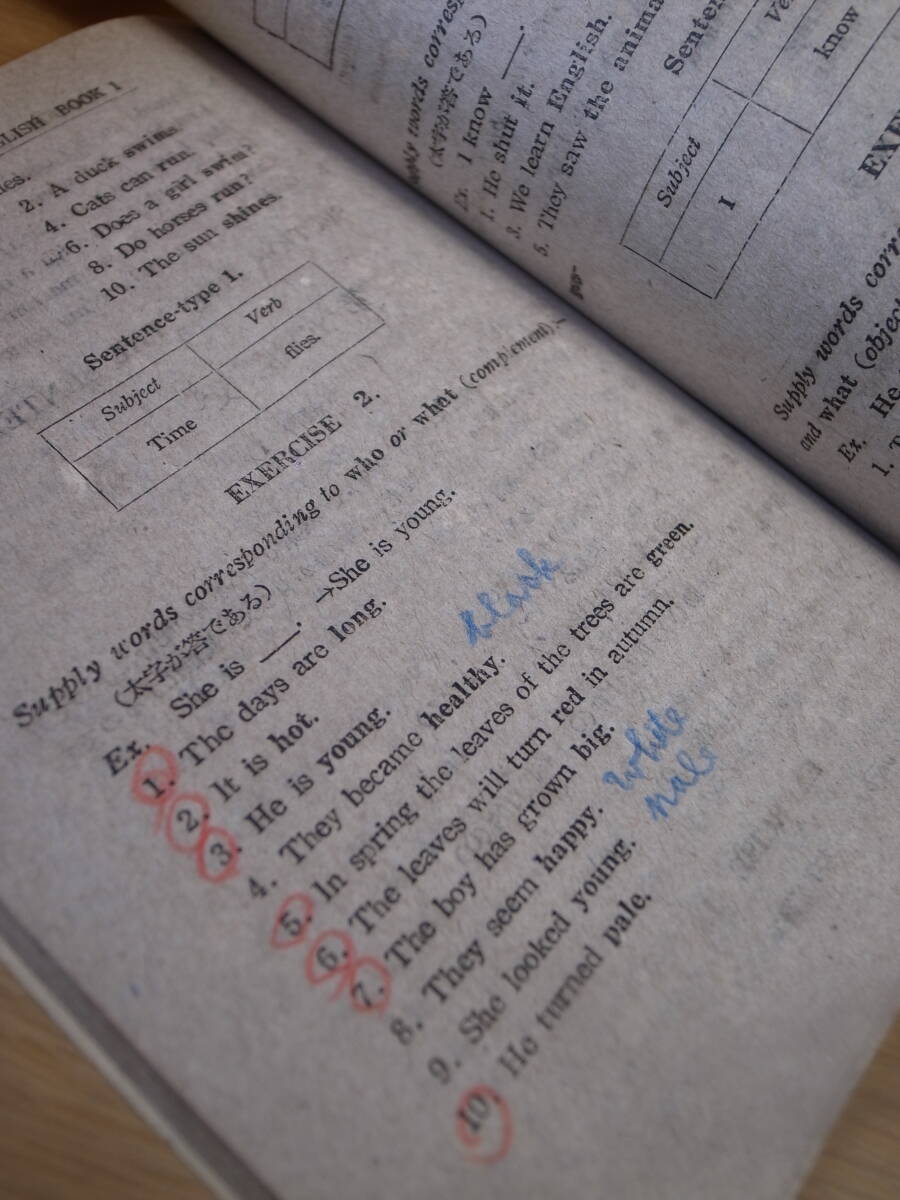 BOOK 1
2. A duck swims.
4. Cats can run.
6. Does a girl swim?
8. Do horses run?
10. The sun shines.
Sentence-type 1.
Subject Verb
Time flies.
EXERCISE 2.
Supply words corresponding to who or what (complement).—
(太字が答である)
Ex. She is ___. →She is young.
1. The days are long.
2. It is hot.
3. He is young.
blank
4. They became healthy.
5. In spring the leaves of the trees are green.
6. The leaves will turn red in autumn.
7. The boy has grown big.
8. They seem happy.
white
9. She looked young.
10. He turned pale.
words
(太字が答である)
Ex. I know ___.
1. He shut it.
3. We learn English.
5. They saw the
Subject
I know
Supply words
and what
Ex. He
1.